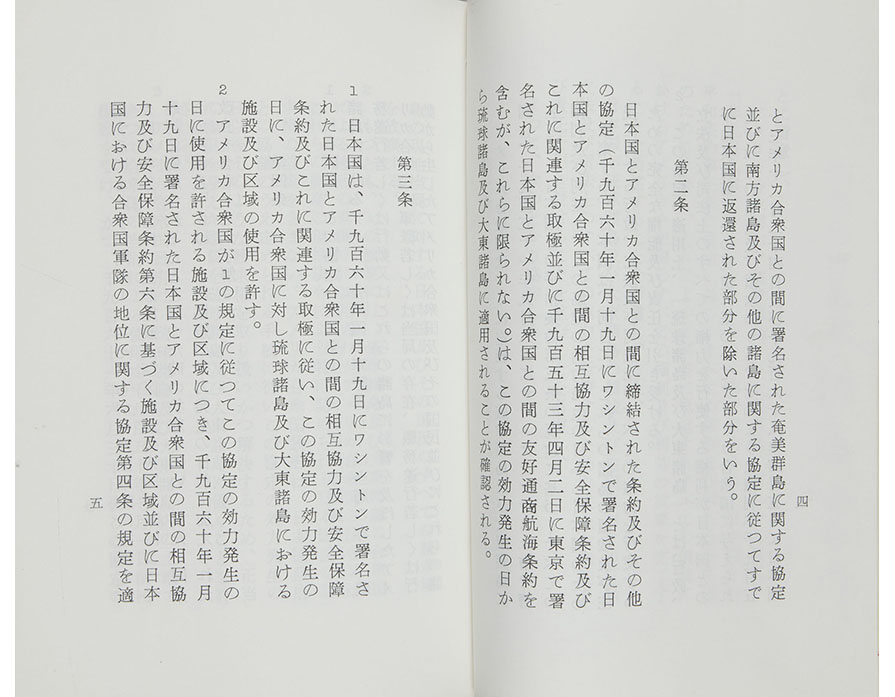 とアメリカ合衆国との間に署名された奄美群島に関する協定
並びに南方諸島及びその他の諸島に関する協定に従つてすで
に日本国に返還された部分を除いた部分をいう。
第二条
日本国とアメリカ合衆国との間に締結された条約及びその他
の協定（千九百六十年一月十九日にワシントンで署名された日
本国とアメリカ合衆国との間の相互協力及び安全保障条約及び
これに関連する取極並びに千九百五十三年四月二日に東京で署
名された日本国とアメリカ合衆国との間の友好通商航海条約を
含むが、これらに限られない。）は、この協定の効力発生の日か
ら琉球諸島及び大東諸島に適用されることが確認される。
四
第三条
1　日本国は、千九百六十年一月十九日にワシントンで署名さ
れた日本国とアメリカ合衆国との間の相互協力及び安全保障
条約及びこれに関連する取極に従い、この協定の効力発生の
日に、アメリカ合衆国に対し琉球諸島及び大東諸島における
施設及び区域の使用を許す。
2　アメリカ合衆国が1の規定に従つてこの協定の効力発生の
日に使用を許される施設及び区域につき、千九百六十年一月
十九日に署名された日本国とアメリカ合衆国との間の相互協
力及び安全保障条約第六条に基づく施設及び区域並びに日本
国における合衆国軍隊の地位に関する協定第四条の規定を適
五